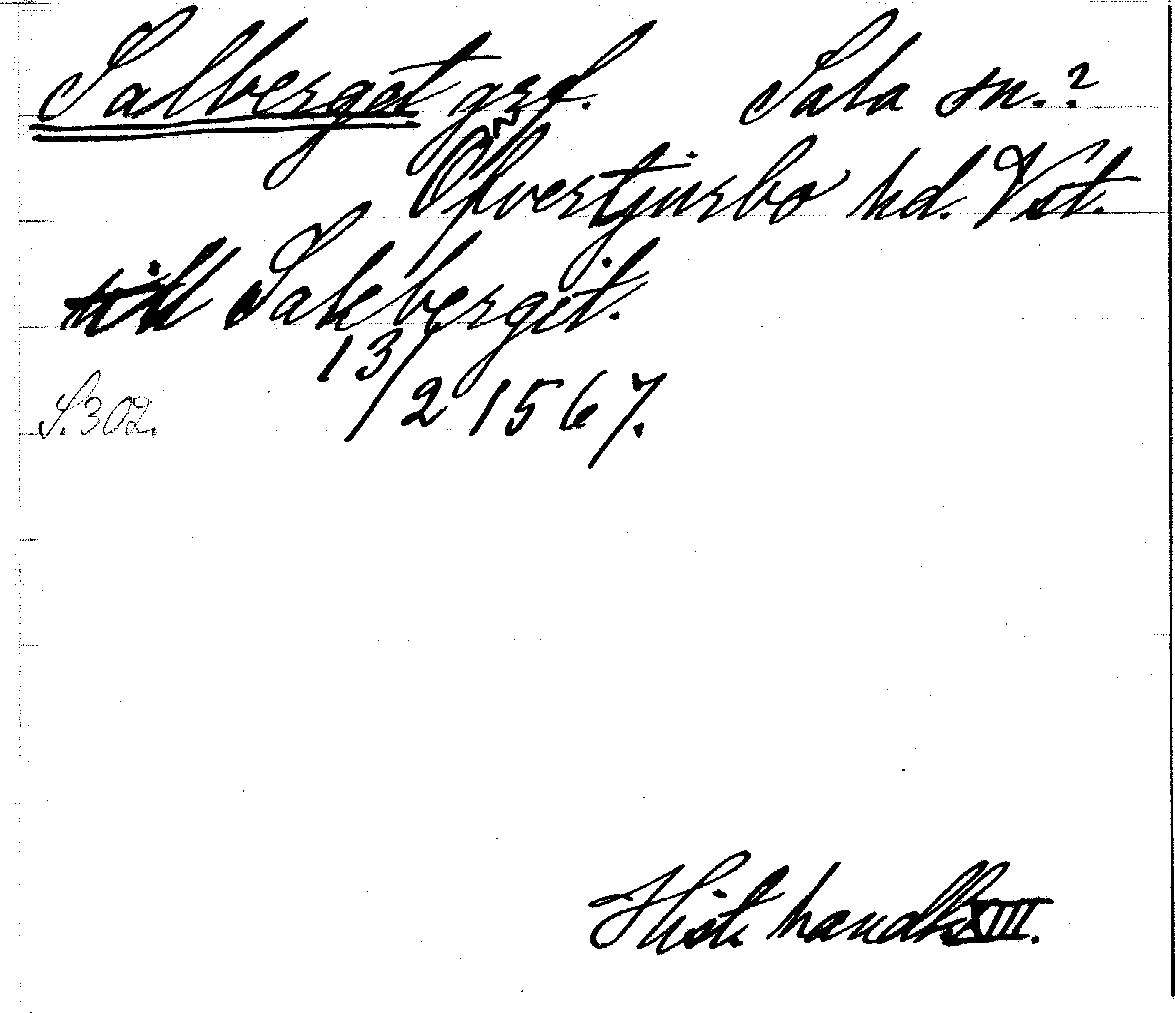 Salberget grf. Sala sn.?
Öfvertjurbo hd. Vst.
till Saleberget.
13/2 1567.
S. 302.
Hist. handl. XIII.